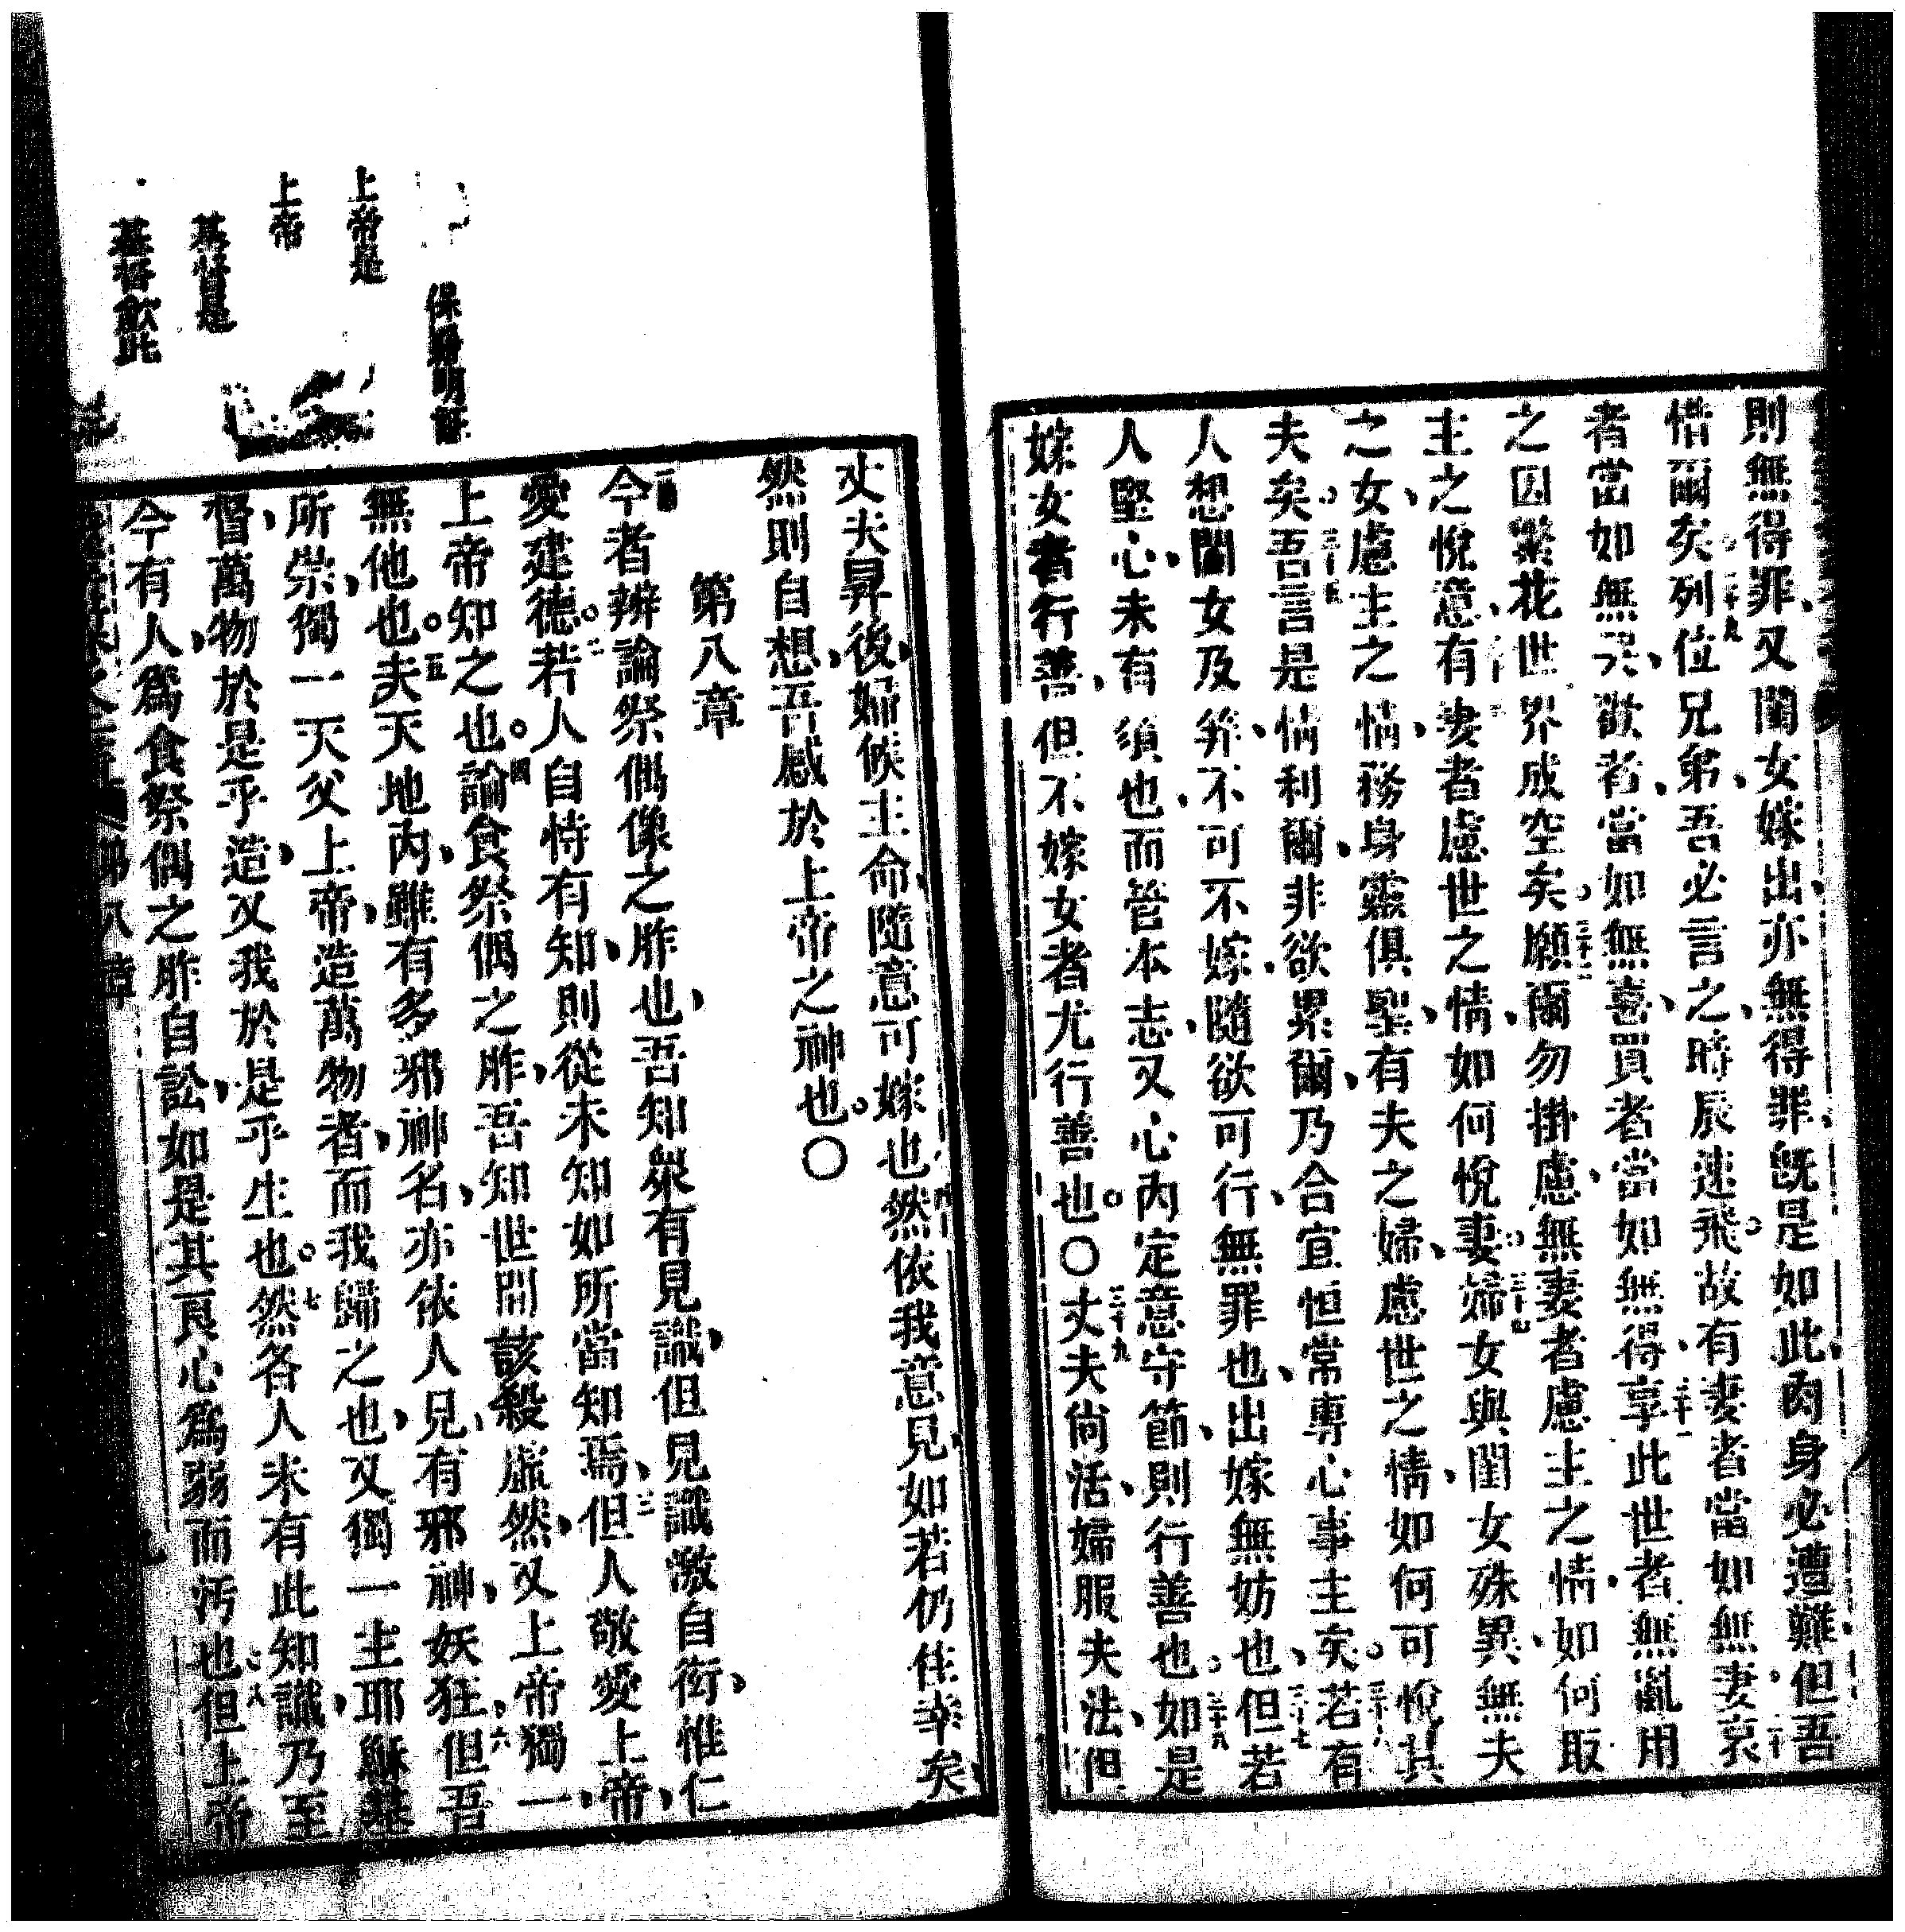 則無得罪又閨女嫁出亦無得罪旣是如此肉身必遭難但吾
惜爾矣二十九列位兄弟吾必言之時辰速飛故有妻者當如無妻哀
者當如無哭歡者當如無喜買者當如無得三十一享此世者無亂用
之因繁花世界成空矣三十二願爾勿掛慮無妻者慮主之情如何取
主之悅意有妻者慮世之情如何悅妻三十四婦女與閨女殊異無夫
之女慮主之情務身靈俱聖有夫之婦慮世之情如何可悅其
夫矣三十五吾言是情利爾非欲累爾乃合宜恒常專心事主矣三十六若有
人想閨女及笄不可不嫁隨欲可行無罪也出嫁無妨也三十七但若
人堅心未有須也而管本志又心內定意守節則行善也三十八如是
嫁女者行善但不嫁女者尤行善也〇三十九丈夫尙活婦服夫法但
丈夫昇後婦候主命隨意可嫁也然依我意見如若仍住幸矣
然則自想吾感於上帝之神也〇
第八章
今者辨論祭偶像之胙也吾知衆有見識但見識激自衒惟仁
愛建德二若人自恃有知則從未知如所當知焉三但人敬愛上帝
上帝知之也四論食祭偶之胙吾知世間該殺虛然又上帝獨一
無他也五夫天地內雖有多邪神名亦依人見有邪神妖狂但六吾
所崇獨一天父上帝造萬物者而我歸之也又獨一主耶穌基
督萬物於是乎造又我於是乎生也七然各人未有此知識乃至
今有人爲食祭偶之胙自訟如是其良心爲弱而汚也八但上帝
第八章
保羅明証
上帝是
上帝
基督是
基督飲此